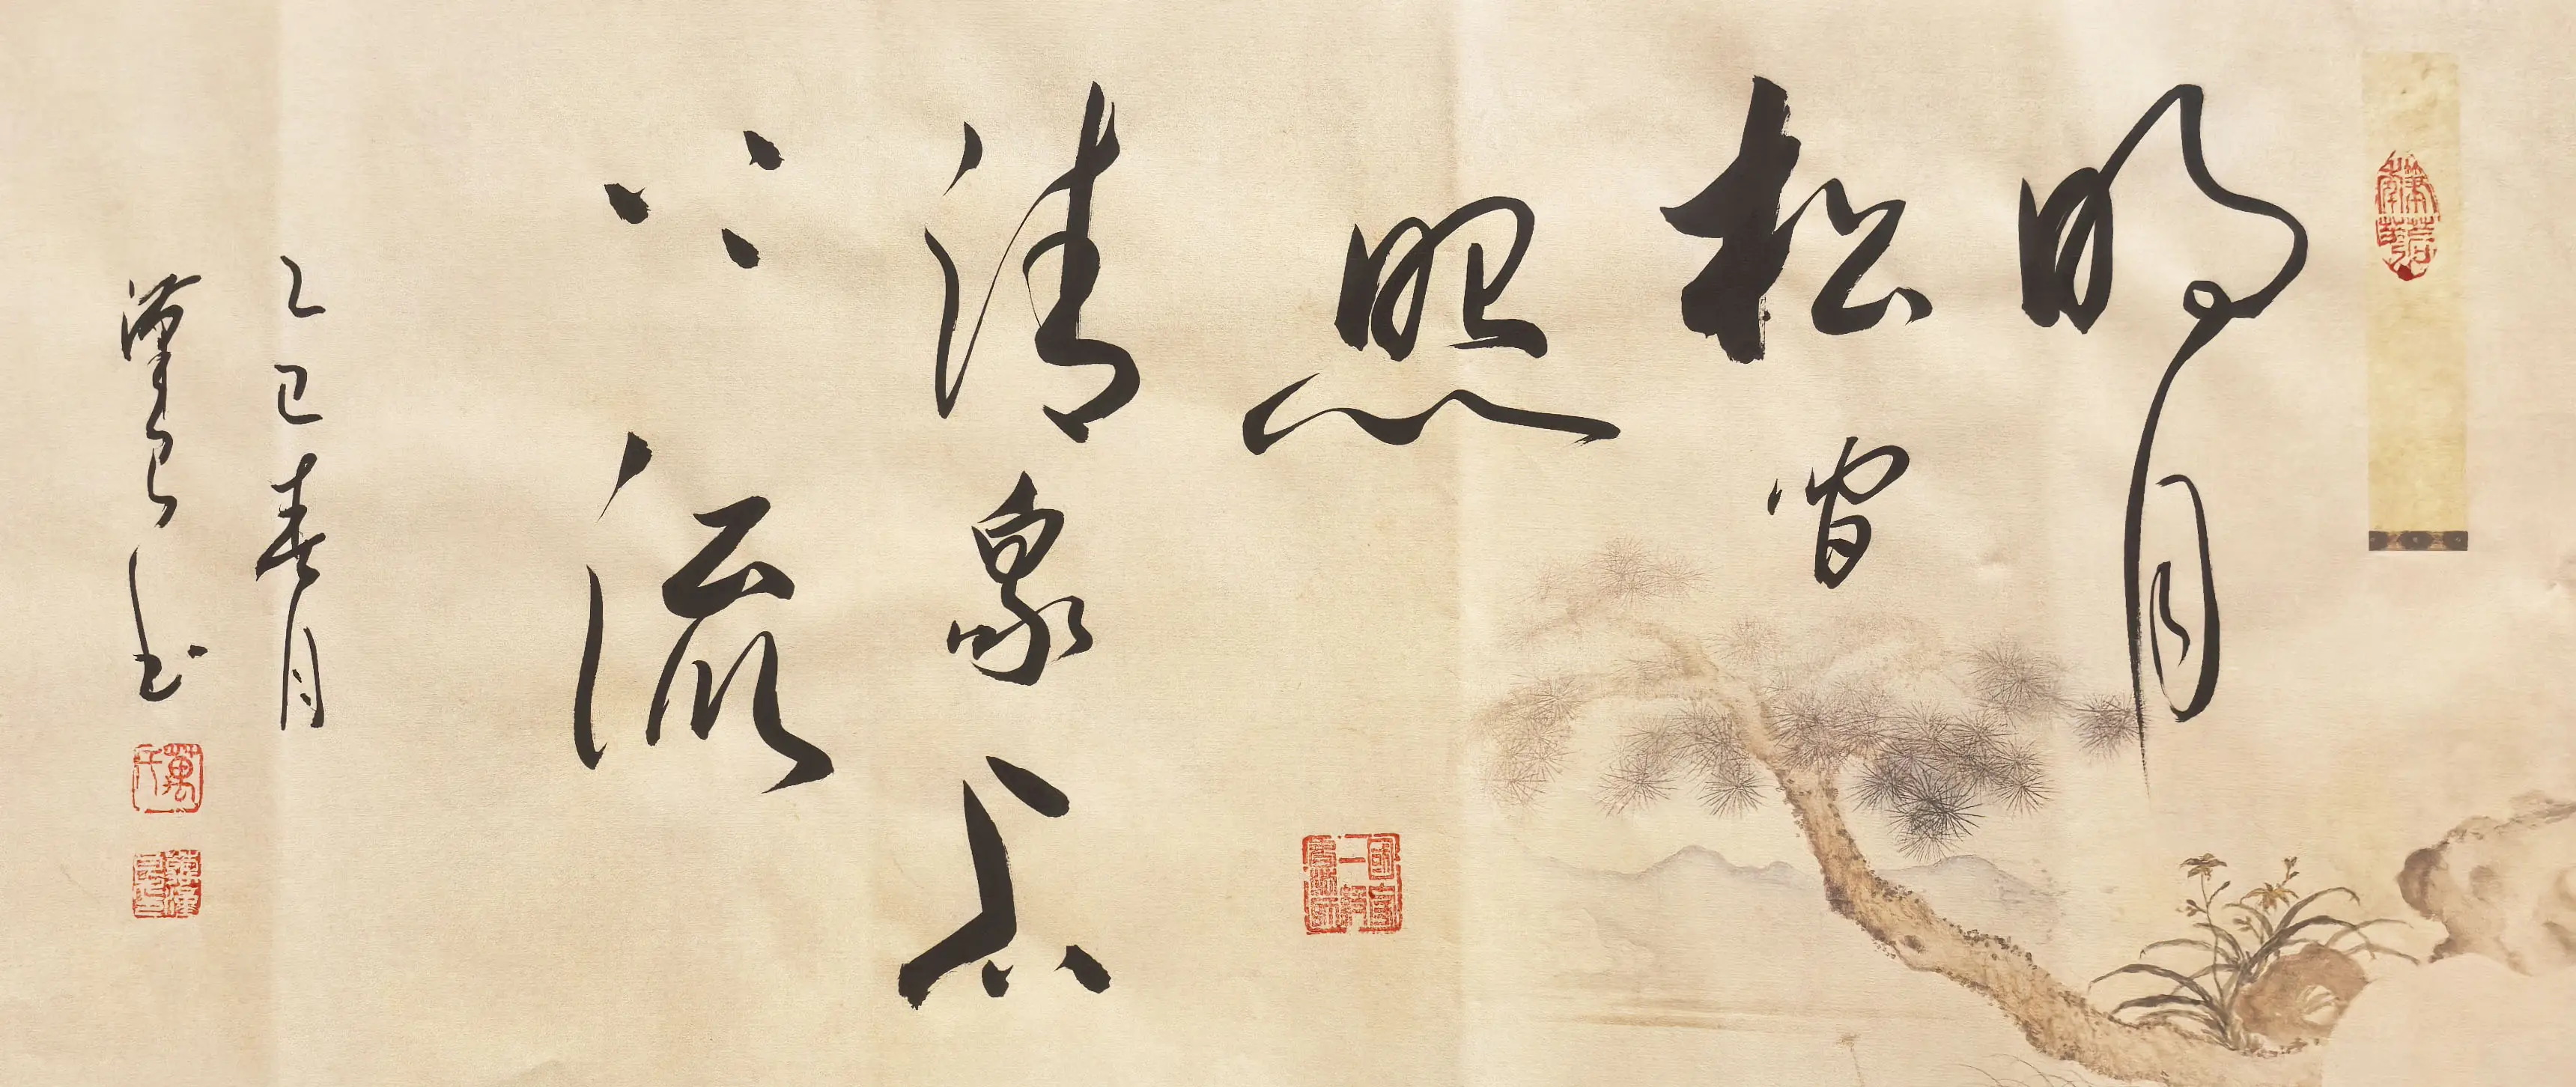 明月
松間
照
清泉石
上流
乙巳春月
萬氏